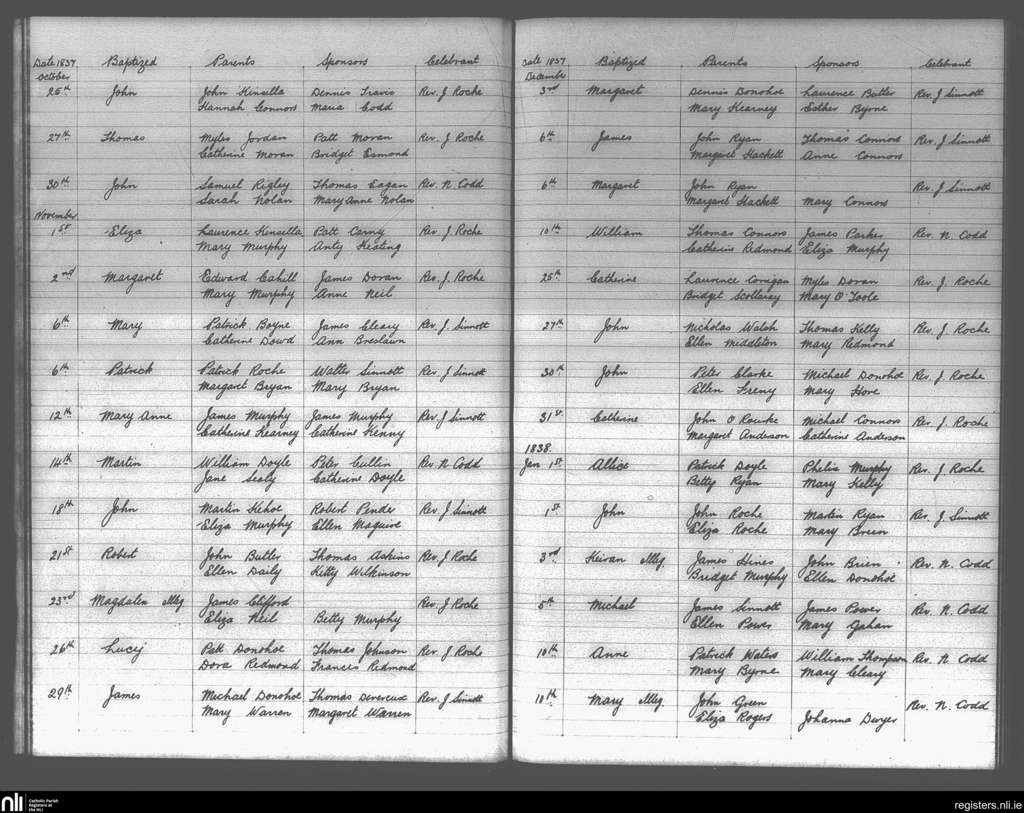 Date 1837 Baptized Parents Sponsors Celebrant
October
25th John John Kinsella Dennis Travis Rev. J Roche
Hannah Connors Maria Codd
27th Thomas Myles Jordan Patt Moran Rev. J Roche
Catherine Moran Bridget Esmond
30th John Samuel Rigley Thomas Eagan Rev. N. Codd
Sarah Nolan Mary Anne Nolan
November
1st Eliza Laurence Kinsella Patt Carny Rev. J. Roche
Mary Murphy Anty Keating
2nd Margaret Edward Cahill James Doran Rev. J Roche
Mary Murphy Anne Neil
6th Mary Patrick Boyne James Cleary Rev. J. Sinnott
Catherine Dowd Ann Breslawn
6th Patrick Patrick Roche Walter Sinnott Rev. J Sinnott
Margaret Bryan Mary Bryan
12th Mary Anne James Murphy James Murphy Rev. J Sinnott
Catherine Kearney Catherine Kenny
14th Martin William Doyle Peter Cullin Rev. N. Codd
Jane Sealy Catherine Doyle
18th John Martin Kehoe Robert Pender Rev. J Sinnott
Eliza Murphy Ellen Maguire
21st Robert John Butler Thomas Askins Rev. J Roche
Ellen Daily Kitty Wilkinson
23rd Magdalen Illeg James Clifford Rev. J Roche
Eliza Neil Betty Murphy
26th Lucy Patt Donohoe Thomas Johnson Rev. J Roche
Dora Redmond Frances Redmond
29th James Michael Donohoe Thomas Devereux Rev. J Sinnott
Mary Warren Margaret Warren
Date 1837 Baptized Parents Sponsors Celebrant
December
3rd Margaret Dennis Donohoe Laurence Butler Rev. J Sinnott
Mary Kearney Esther Byrne
6th James John Ryan Thomas Connors Rev. J Sinnott
Margaret Hackett Anne Connors
6th Margaret John Ryan Rev. J Sinnott
Margaret Hackett Mary Connors
10th William Thomas Connors James Parker Rev. N. Codd
Catherine Redmond Eliza Murphy
25th Catherine Laurence Corrigan Myles Doran Rev. J. Roche
Bridget Scollaray Mary O'Toole
27th John Nicholas Walsh Thomas Kelly Rev. J. Roche
Ellen Middleton Mary Redmond
30th John Peter Clarke Michael Donohoe Rev. J. Roche
Ellen Freny Mary Hore
31st Catherine John O'Rourke Michael Connors Rev. J. Roche
Margaret Anderson Catherine Anderson
1838.
Jan 1st Allice Patrick Doyle Phelix Murphy Rev. J. Roche
Betty Ryan Mary Kelly
1st John John Roche Martin Ryan Rev. J Sinnott
Eliza Roche Mary Breen
3rd Keivan Illeg. James Hines John Brien Rev. N. Codd
Bridget Murphy Ellen Donohoe
5th Michael James Sinnott James Power Rev. N. Codd
Ellen Power Mary Gahan
10th Anne Patrick Waters William Thompson Rev. N. Codd
Mary Byrne Mary Cleary
10th Mary Illeg John Green Rev. N. Codd
Eliza Rogers Johanna Dwyer
nli Catholic Parish
Registers at
the NLI
registers.nli.ie